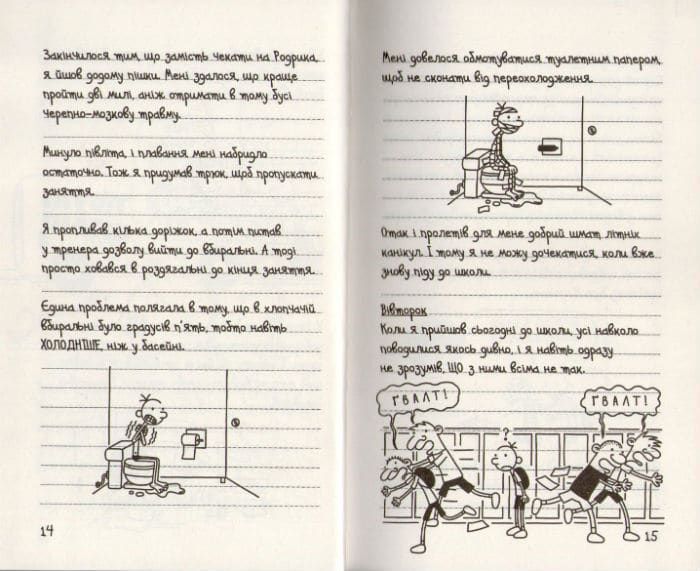 Закінчилося тим, що замість чекати на Родрика,
я йшов додому пішки. Мені здалося, що краще
пройти дві милі, аніж отримати в тому бусі
черепно-мозкову травму.
Минуло півліта, і плавання мені набридло
остаточно. Тож я придумав трюк, щоб пропускати
заняття.
Я пропливав кілька доріжок, а потім питав
у тренера дозволу вийти до вбиральні. А тоді
просто ховався в роздягальні до кінця заняття.
Єдина проблема полягала в тому, що в хлопчачій
вбиральні було градусів п'ять, тобто навіть
ХОЛОДНІШЕ, ніж у басейні.
14
Мені довелося обмотуватися туалетним папером,
щоб не сконати від переохолодження.
Отак і пролетів для мене добрий шмат літніх
канікул. І тому я не можу дочекатися, коли вже
знову піду до школи.
Вівторок
Коли я прийшов сьогодні до школи, усі навколо
поводилися якось дивно, і я навіть одразу
не зрозумів, ЩО з ними всіма не так.
ҐВАЛТ!
?
ҐВАЛТ!
15